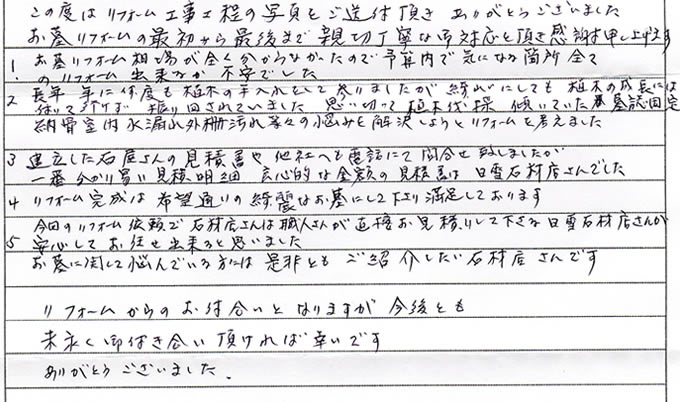 この度はリフォーム工事工程の写真をご送付頂き ありがとうございました
お墓リフォームの最初から最後まで親切丁寧な御対応を頂き感謝申し上げます
1 お墓リフォーム相場が全く分からなかったので予算内で気になる箇所全て
のリフォーム出来るか不安でした
2 長年 年に何度も植木の手入れをして参りましたが 綺れいにしても植木の成長には
追い付けず 振り回されていました 思い切って植木伐採 傾いていた墓誌固定
納骨室内水漏れ外柵汚れ等々の悩みを解決しようとリフォームを考えました
3 建立した石屋さんの見積書や他社へも電話にて問合せ致しましたが
一番分かり易い見積明細 良心的な金額の見積書は日雪石材店さんでした
4 リフォーム完成は希望通りの綺麗なお墓にして下さり満足しております
今回のリフォーム依頼で石材店さんは職人さんが直接お見積りして下さる日雪石材店さんが
5 安心してお任せ出来ると思いました
お墓に関して悩んでいる方には是非ともご紹介したい石材店さんです
リフォームからのお付合いとなりますが今後とも
末永く御付き合い頂ければ幸いです
ありがとうございました.